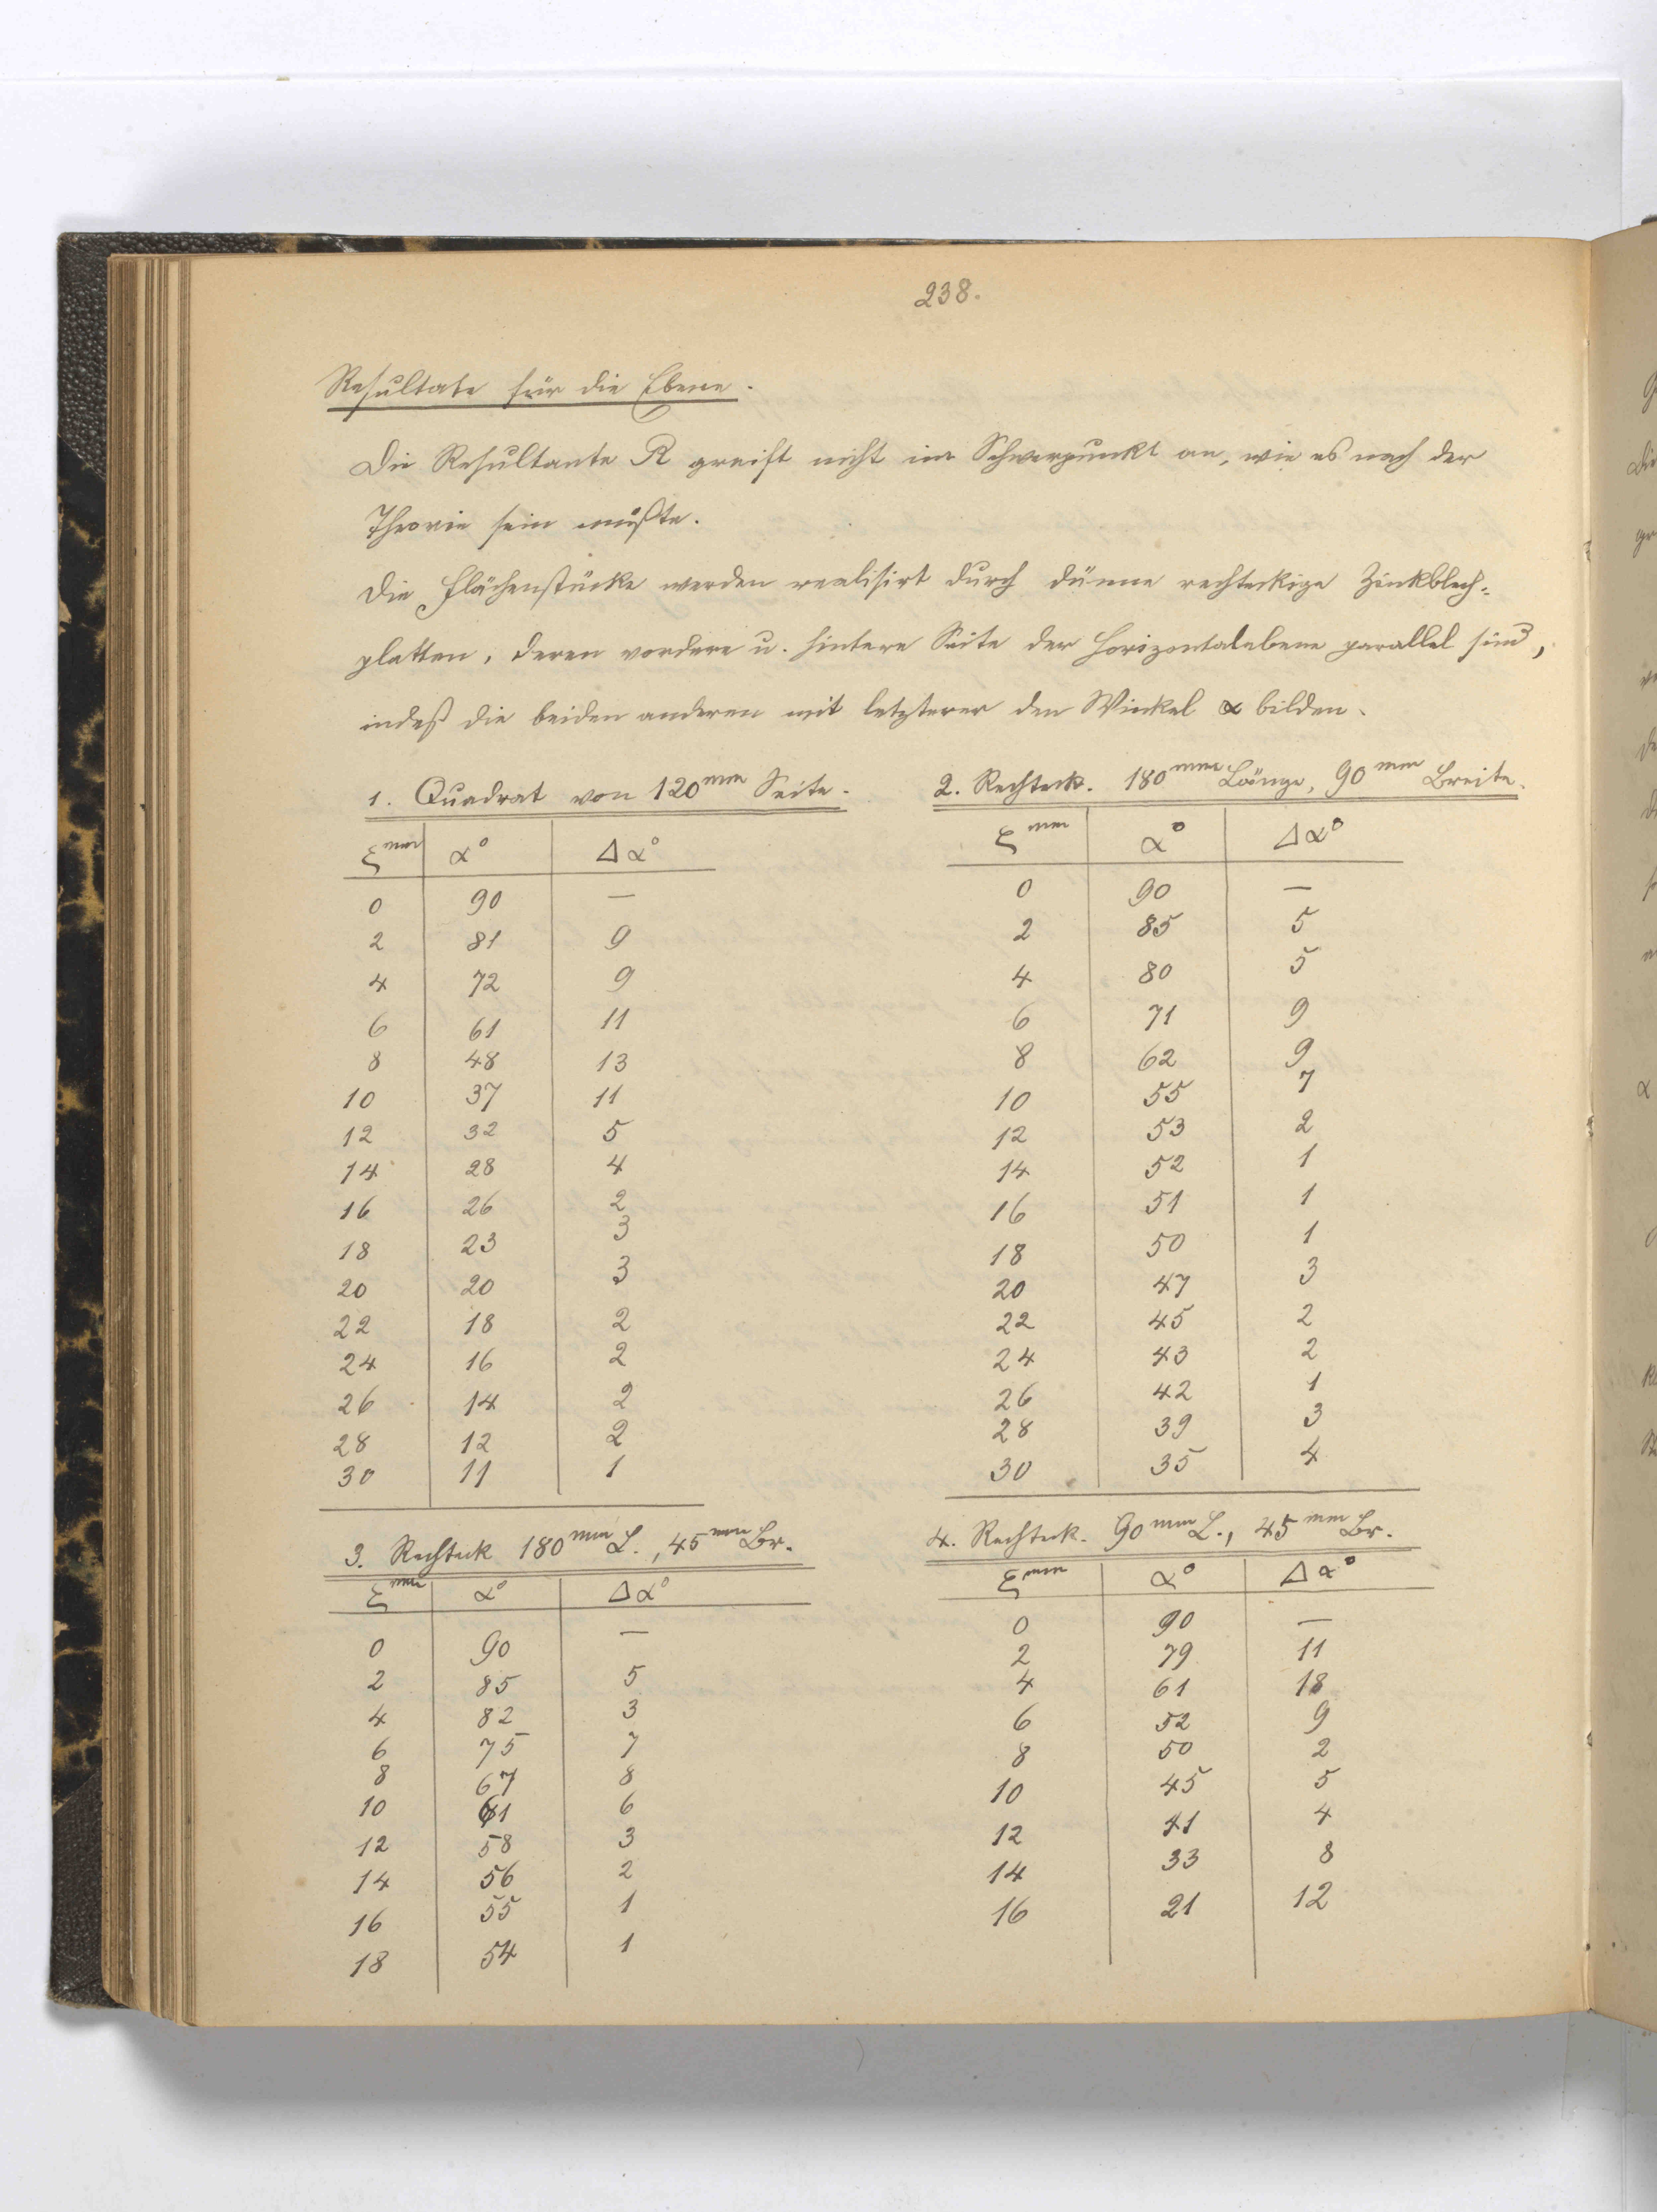 238.
Resultate für die Ebene.
Die Resultante R greift nicht im Schwerpunkt an, wie es nach der
Theorie sein müßte.
Die Flächenstücke werden realisirt durch dünne rechteckige Zinkblech-
platten, deren vordere u. hintere Seite der Horizontalebene parallel sind,
indeß die beiden anderen mit letzterer den Winkel α bilden.
1. Quadrat von 120mm Seite.
ξmm α° Δα°
0 90 —
2 81 9
4 72 9
6 61 11
8 48 13
10 37 11
12 32 5
14 28 4
16 26 2
18 23 3
20 20 3
22 18 2
24 16 2
26 14 2
28 12 2
30 11 1
2. Rechteck. 180mm Länge, 90mm Breite.
ξmm α° Δα°
0 90 —
2 85 5
4 80 5
6 71 9
8 62 9
10 55 7
12 53 2
14 52 1
16 51 1
18 50 1
20 47 3
22 45 2
24 43 2
26 42 1
28 39 3
30 35 4
3. Rechteck 180mm L., 45mm Br.
ξmm α° Δα°
0 90 —
2 85 5
4 82 3
6 75 7
8 67 8
10 61 6
12 58 3
14 56 2
16 55 1
18 54 1
4. Rechteck. 90mm L., 45mm Br.
ξmm α° Δα°
0 90 —
2 79 11
4 61 18
6 52 9
8 50 2
10 45 5
12 41 4
14 33 8
16 21 12